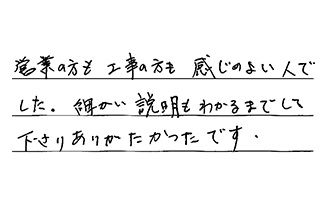 営業の方も工事の方も感じのよい人で
した。細かい説明もわかるまでして
下さりありがたかったです。